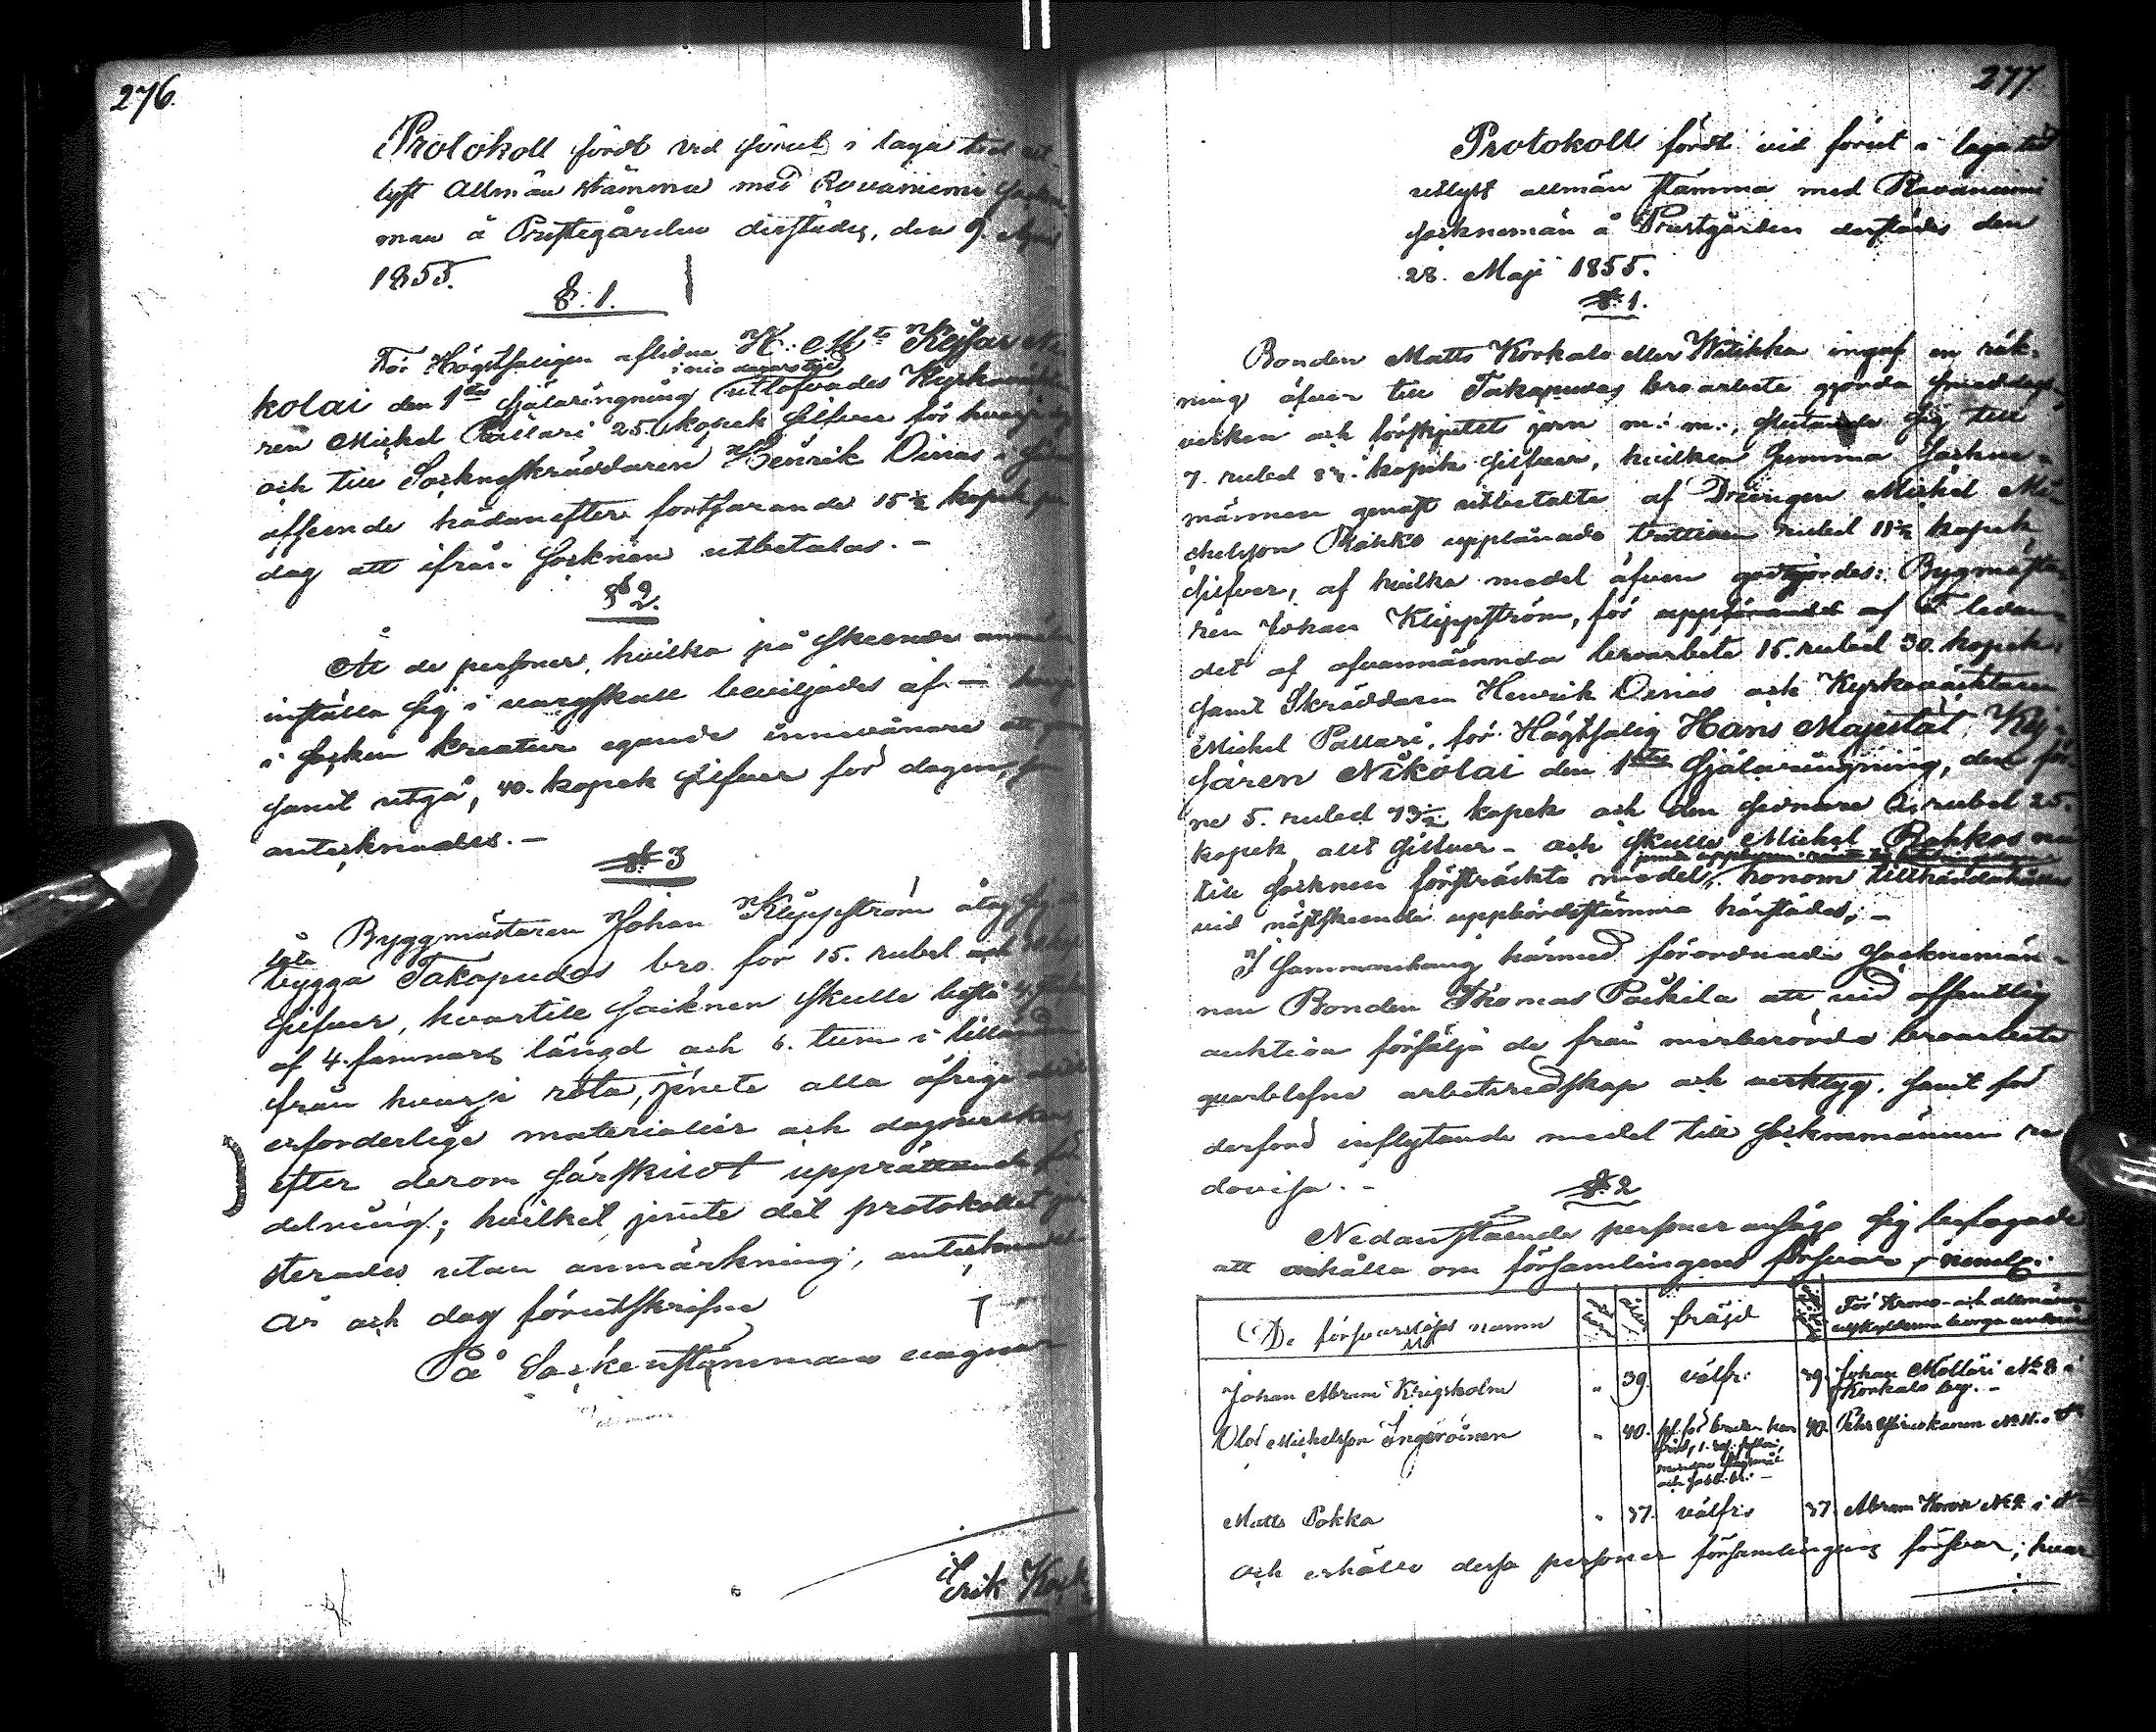 276.
Protokoll fördt vid förut i laga tid ut-
lyst Allmän stämma med Rovaniemi
män å Prestegården derstädes, den 9. April
1855.
§. 1.
För Högstsaligen aflidne H. M:t Kejsar Ni
kolai den 1:sta själaringning i nio dagars tid utlofvades Kyrkoväkta
ren Michel Pallari 25. kopek silfver för hvarje dag
och till Socknaskräddaren Henrik Dinas i
afseende hädanefter fortfarande 15 ½ kopek per
dag att ifrån socknen utbetalas. -
§ 2.
At de personer, hvilka på skeende anmälan
inställa sig i vargskall beviljades af - hvarje
i socken kreatur egande innevånare att
samt utgå, 40. kopek silfver för dagen, som
antecknades. -
§ 3
Byggmästaren Johan Klippström åtog sig
låta bygga Takapudas bro för 15. rubel och 30 kop
silfver, hvartill socknen skulle bestå
af 4. famnars längd och 6. tum i
från hvarje rota, jemte alla öfrige
erforderlige materialier och dagsverken
efter derom särskildt upprättande för
delning; hvilket, jemte det protokollet ju
sterades utan anmärkning, antecknades
År och dag förutskrifne
På Sockenstämmans vägnar
Erik Kor
277.
Protokoll fördt vid förut i laga tid
utlyst allmän stämma med Rovaniemi
socknemän å Prestgården derstädes den
28. Maji 1855.
§. 1.
Bonden Matts Korkalo eller Witikka ingaf en räk-
ning öfver till Takapudas broarbete gjorda smeddags-
verken och förskjutet jern m. m., slutande sig till
7. rubel kopek silfver, hvilken summa sockne-
männen genast utbetalte af Drengen Michel Mi
chelsson Rohko upplånade trettioen rubel 11 ½ kopek
silfver, af hvilka medel äfven godtgjordes: Bygmästa-
ren Johan Klippström, för uppförandet af ledan-
det af ofvannämnda broarbete 15. rubel 30. kopek,
samt Skräddaren Henrik Dinas och Kyrkoväktaren
Michel Pallari, för Högstsalig Hans Majestät Kej-
saren Nikolai den 1:sta själaringning, den för-
ne 5. rubel 13 ½ kopek och den sednare 2. rubel 25.
kopek, allt silfver - och skulle Michel Rohkos nu
till socknen försträckta medel, honom tillhandahållas
vid nästskeende uppbördsstämma härstädes. -
I sammanhang härmed förordnade Socknemän-
nen Bonden Thomas Paikila att vid offentlig
auktion försälja de från merberörda broarbete
quarblefne arbetsredskap och verktyg, samt för
derförd inflytande medel till Socknemännen re
dovisa. -
§. 2
Nedanstående personer ansågo sig befogade
att anhålla om församlingens försvar, nemln:
De försvarslöses namn
ålder
fräjd
För Krono- och allmänna
utskylderna borga
Johan Abram Krigsholm " 39. välfr: 39. Johan Mollari № 8 i
Korkalo by. -
Olof Michelsson Ångeröinen " 40. 40. Petr № 11. i d:o
Matts Pokka " 37. välfr: 37. Abram № 2 i d:o
Och erhålla dessa personer församlingens försvar; hvar